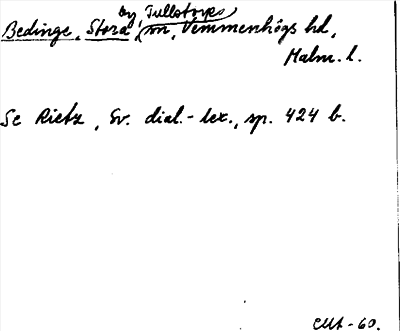 by, Tullstorps
Bedinge, Stora, sn, Vemmenhögs hd,
Malm. l.
Se Rietz, Sv. dial.-lex., sp. 424 b.
-60.